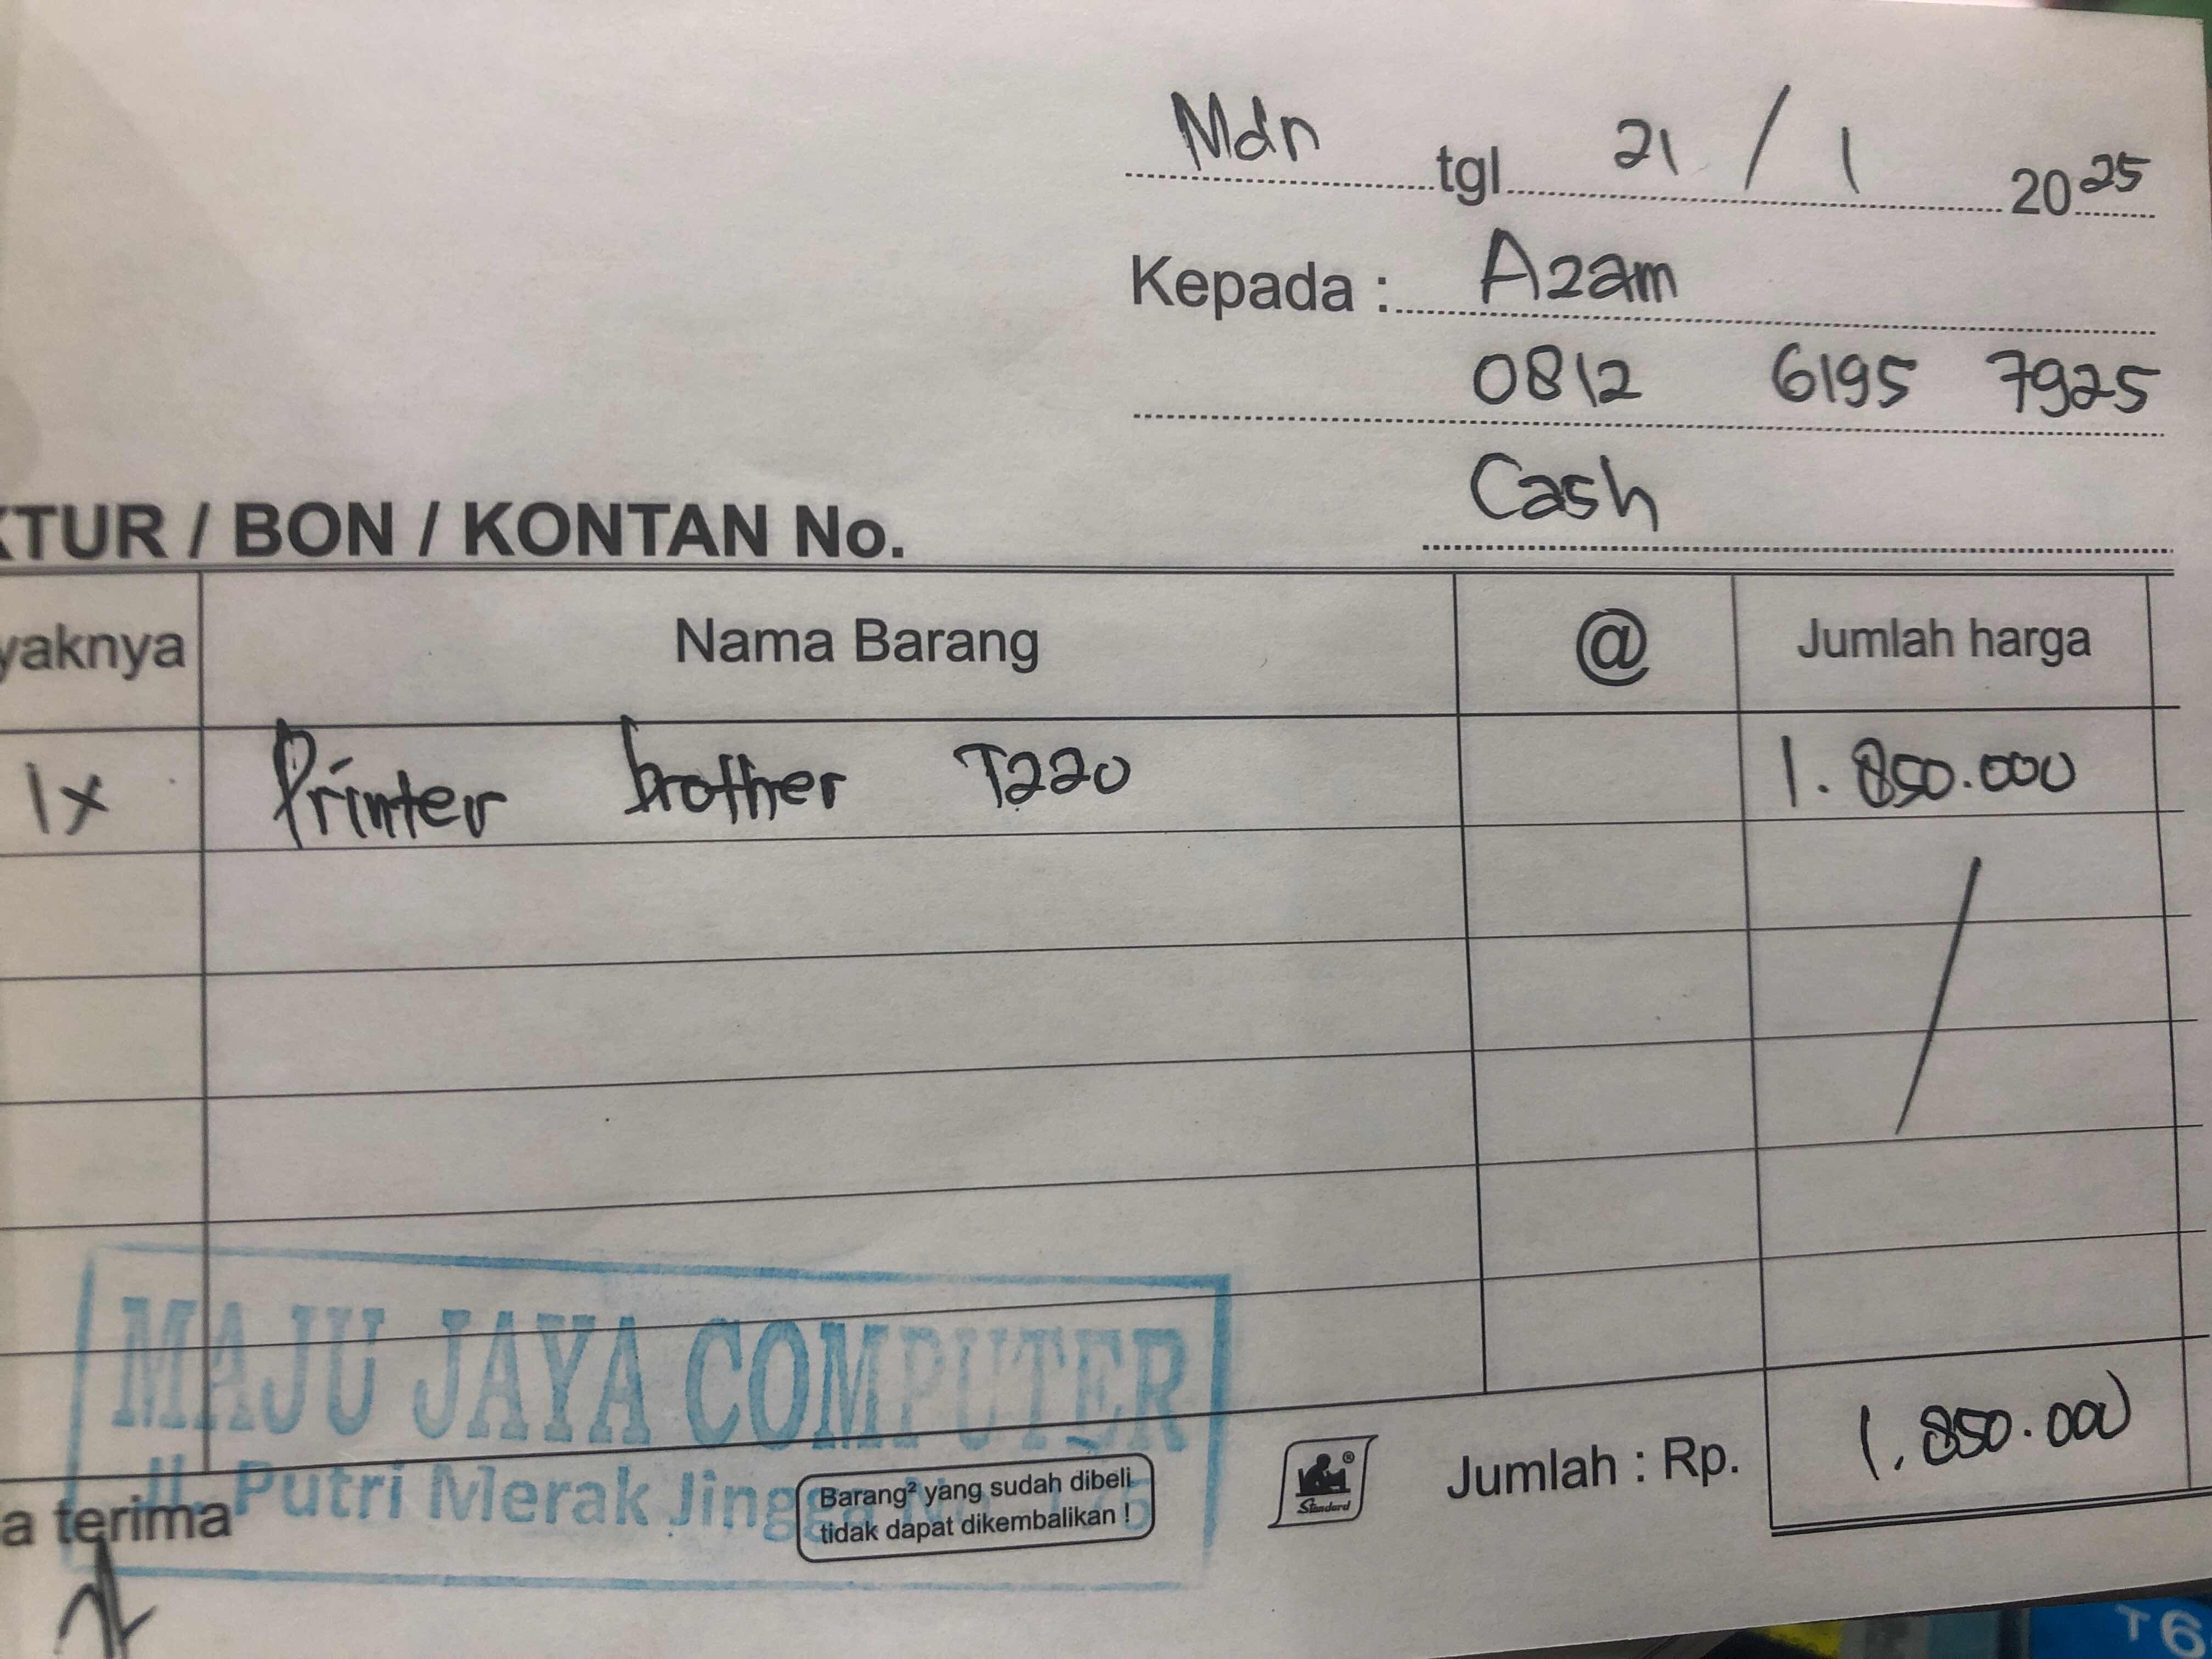 Mdn tgl 21 / 1 2025
Kepada : Azam
0812 6195 7925
Cash
KTUR / BON / KONTAN No.
yaknya Nama Barang @ Jumlah harga
1x Printer brother T220 1.850.000
MAJU JAYA COMPUTER
Jl. Putri Merak Jingga
Jumlah : Rp. 1.850.000
a terima
Barang² yang sudah dibeli
tidak dapat dikembalikan !
Standard
T6